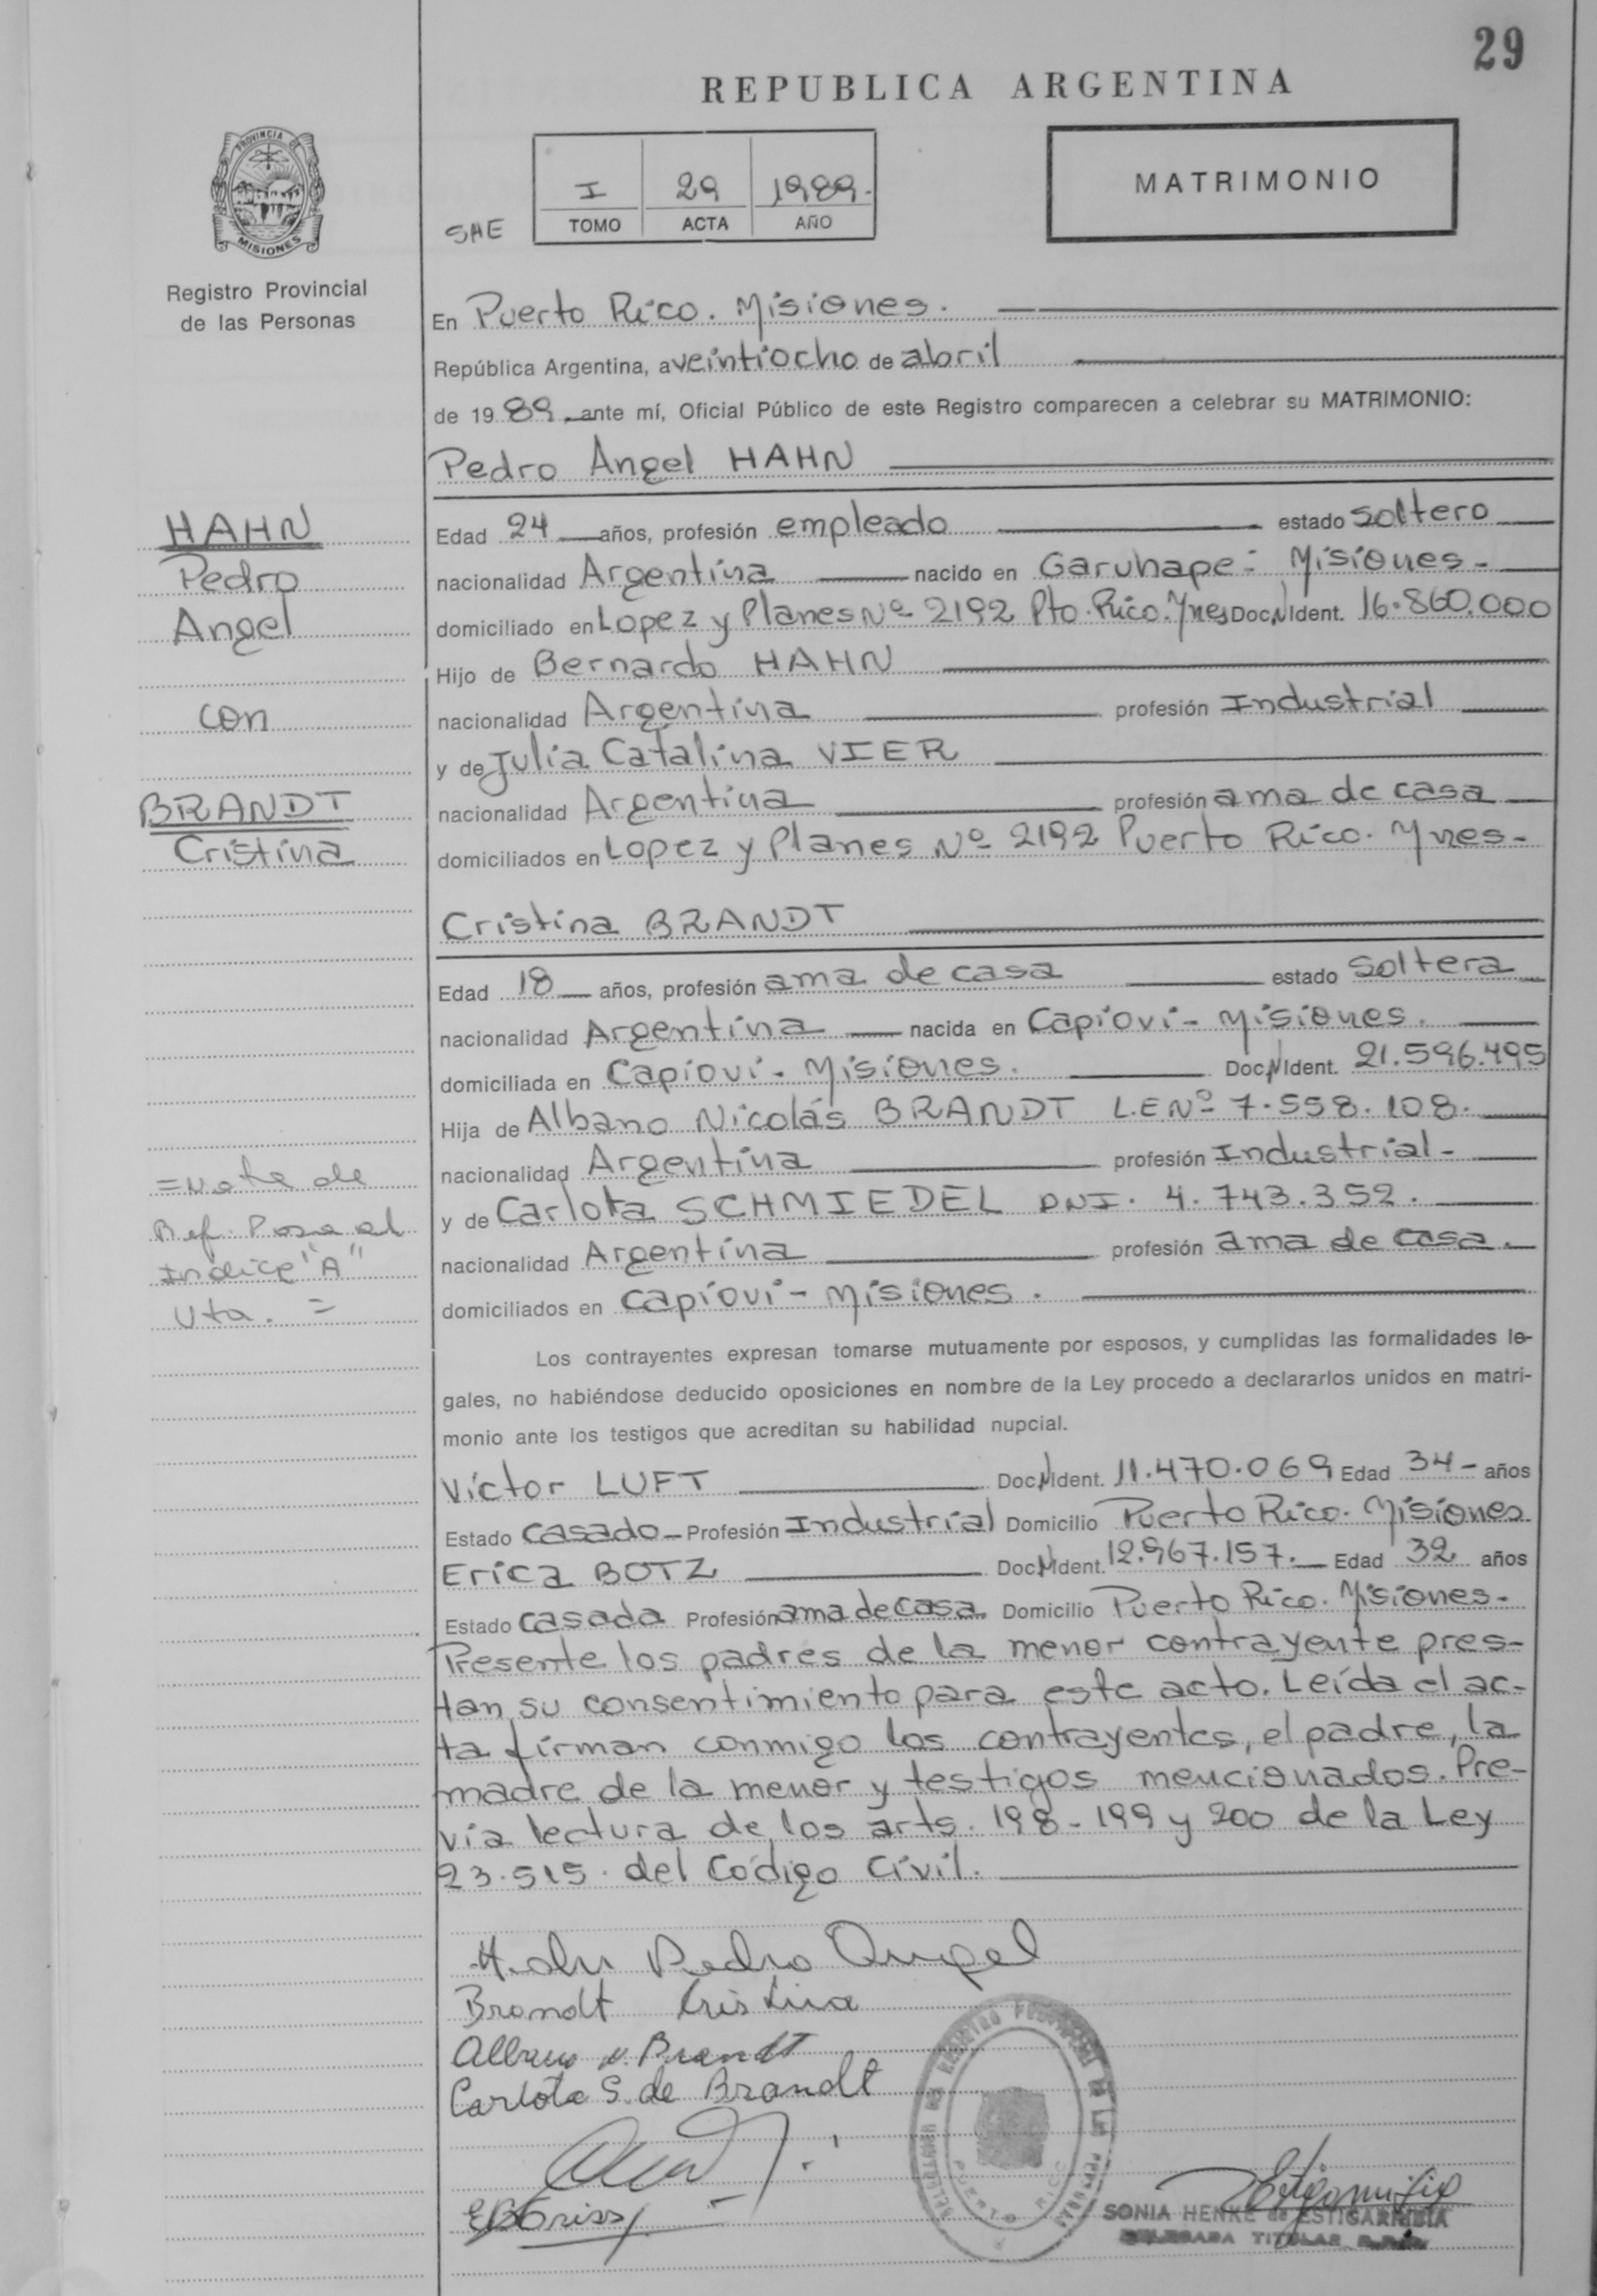 29
REPUBLICA ARGENTINA
PROVINCIA DE
MISIONES
Registro Provincial
de las Personas
I 29 1989.-
TOMO ACTA AÑO
MATRIMONIO
En Puerto Rico. Misiones.
República Argentina, a veintiocho de abril
de 1989 ante mí, Oficial Público de este Registro comparecen a celebrar su MATRIMONIO:
Pedro Angel HAHN
HAHN
Pedro
Angel
con
BRANDT
Cristina
Edad 24 años, profesión empleado estado soltero
nacionalidad Argentina nacido en Garuhape - Misiones -
domiciliado en Lopez y Planes Nº 2192 Pto. Rico. Mnes Doc. N Ident. 16.860.000
Hijo de Bernardo HAHN
nacionalidad Argentina profesión Industrial
y de Julia Catalina VIER
nacionalidad Argentina profesión ama de casa
domiciliados en Lopez y Planes Nº 2192 Puerto Rico. Mnes -
Cristina BRANDT
Edad 18 años, profesión ama de casa estado soltera
nacionalidad Argentina nacida en Capiovi - Misiones.
domiciliada en Capiovi - Misiones. Doc. N Ident. 21.596.495
Hija de Albano Nicolás BRANDT L.E Nº 7.558.108.
nacionalidad Argentina profesión Industrial -
y de Carlota SCHMIEDEL DNI. 4.743.352.
nacionalidad Argentina profesión ama de casa.
domiciliados en Capiovi - Misiones.
= Nota de
Ref. Pasa al
Indice "A"
Vta. =
Los contrayentes expresan tomarse mutuamente por esposos, y cumplidas las formalidades le-
gales, no habiéndose deducido oposiciones en nombre de la Ley procedo a declararlos unidos en matri-
monio ante los testigos que acreditan su habilidad nupcial.
Víctor LUFT Doc. N Ident. 11.470.069 Edad 34 - años
Estado casado - Profesión Industrial Domicilio Puerto Rico. Misiones
Erica BOTZ Doc. N Ident. 12.967.157. Edad 32 años
Estado casada Profesión ama de casa. Domicilio Puerto Rico. Misiones -
Presente los padres de la menor contrayente pres-
tan su consentimiento para este acto. Leída el ac-
ta firman conmigo los contrayentes, el padre, la
madre de la menor y testigos mencionados. Pre-
via lectura de los arts. 198 - 199 y 200 de la Ley
23.515. del Código Civil.
Hahn Pedro Angel
Brandt Cristina
Albano N. Brandt
Carlota S. de Brandt
PUERTO RICO
SONIA HENKE de ESTIGARRIBIA
DELEGADA TITULAR